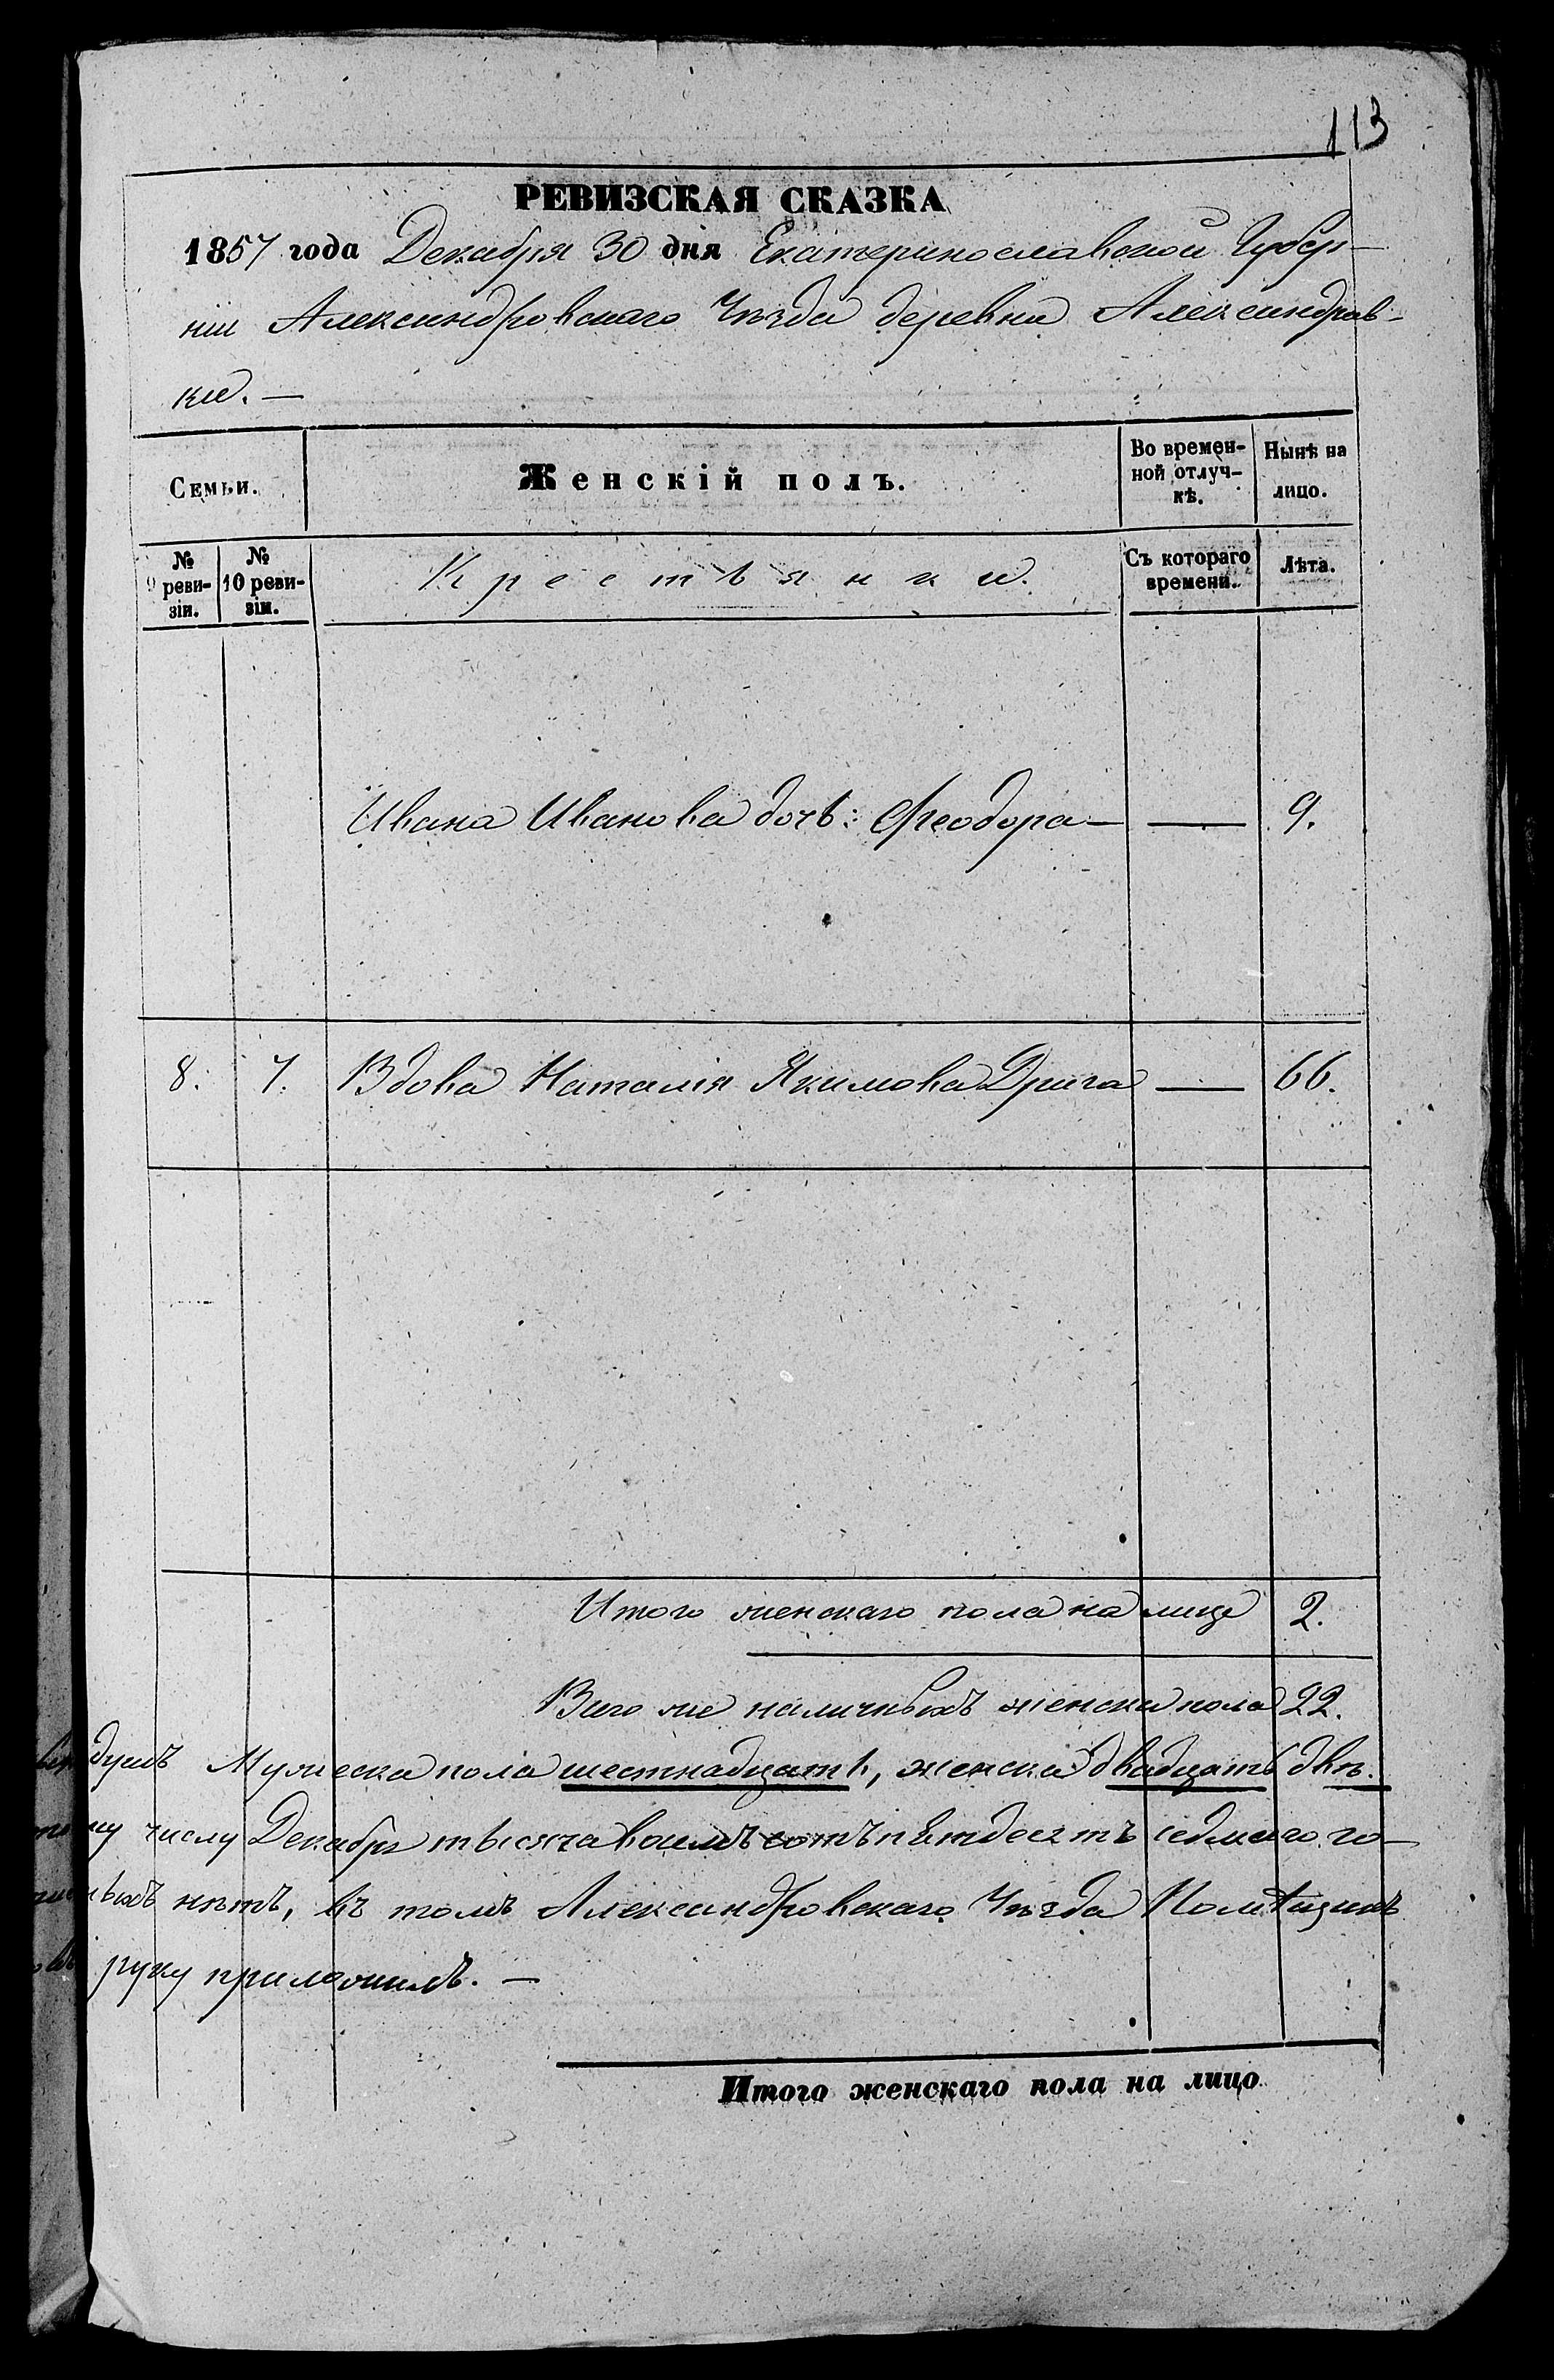 113
РЕВИЗСКАЯ СКАЗКА
1857 года Декабря 30 дня Екатеринославской Губер-
ніи Александровскаго Уѣзда деревни Александров-
ки. —
Семьи. Женскій полъ. Во времен- Нынѣ на
ной отлуч- лицо.
кѣ.
№ № Крестьянки. Съ котораго Лѣта.
9 реви- 10 реви- времени.
зіи. зіи.
Ивана Иванова дочь: Феодора — — 9.
8. 7. Вдова Наталія Якимова Дрига — 66.
Итого женскаго пола на лице 2.
Всего же наличныхъ женска пола 22.
душъ Мужеска пола шестнадцать, женска двадцать двѣ.
числу Декабря тысяча восемъ сотъ пѣтдесятъ седмаго го-
нѣтъ, въ томъ Александровскаго Уѣзда Помѣщикъ
руку приложилъ. —
Итого женскаго пола на лицо